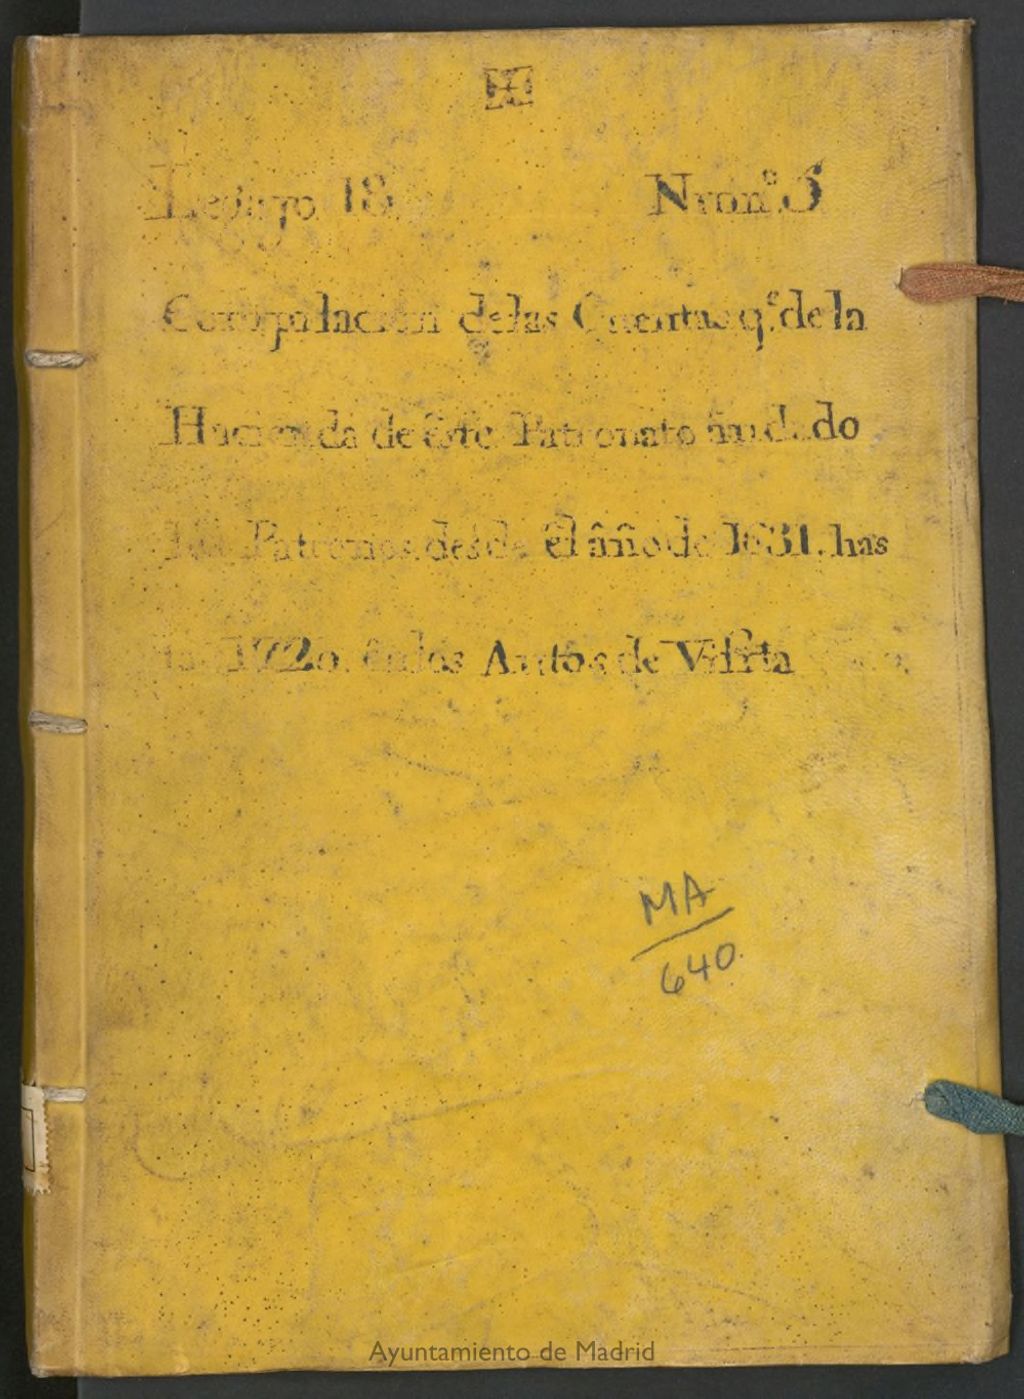 Legajo 18 Num.º 6
Compulacion delas Cuentas q.e dela
Hacienda de êste Patronato han dado
los Patronos desde êl âño de 1631. has
ta 1720. ên los Autôs de Visîta
MA
640.
Ayuntamiento de Madrid